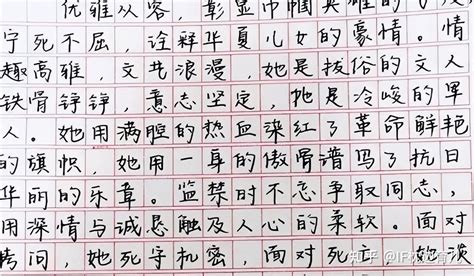 优雅从容，彰显巾帼英雄的
宁死不屈，诠释华夏儿女的豪情。情
趣高雅，文艺浪漫，她是拔俗的文人
铁骨铮铮，意志坚定，她是冷峻的军
人。她用满腔的热血染红了革命鲜艳
的旗帜，她用一身的傲骨谱写了抗日
华丽的乐章。监禁时不忘争取同志，
用深情与诚恳触及人心的柔软。面对
拷问，她死守机密，面对死亡，她
知乎